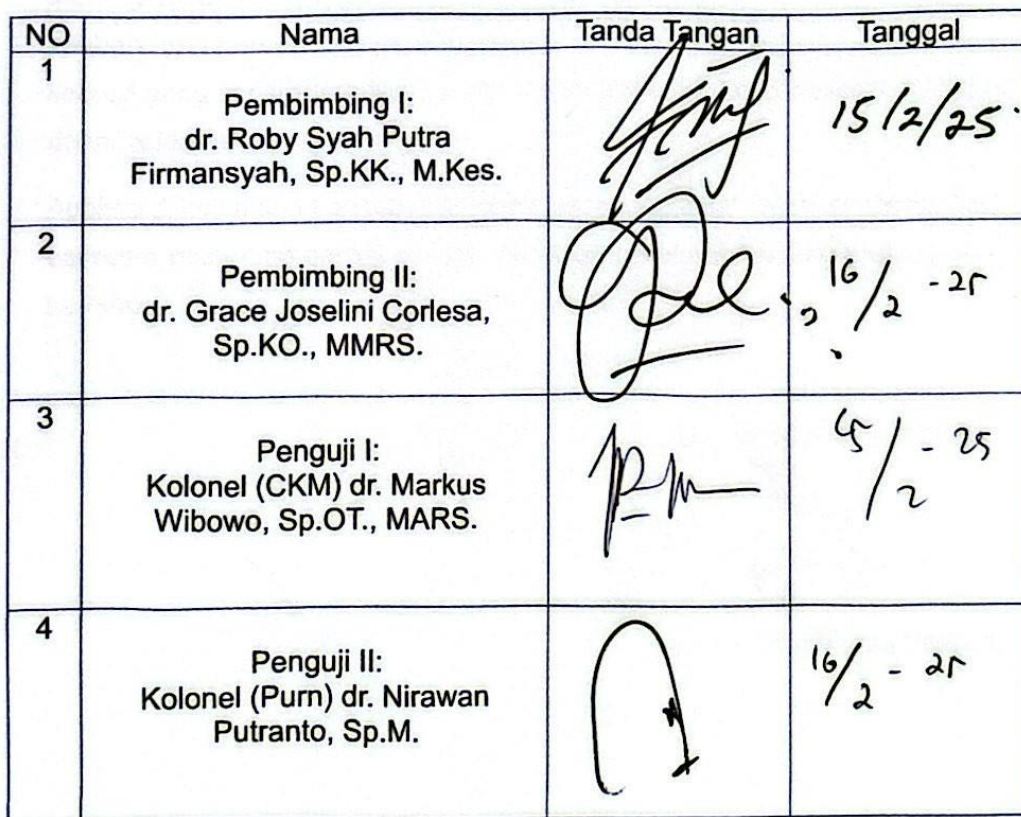 NO Nama Tanda Tangan Tanggal
1
Pembimbing I:
dr. Roby Syah Putra
Firmansyah, Sp.KK., M.Kes.
15/2/25
2
Pembimbing II:
dr. Grace Joselini Corlesa,
Sp.KO., MMRS.
16/2 - 25
3
Penguji I:
Kolonel (CKM) dr. Markus
Wibowo, Sp.OT., MARS.
/2 - 25
4
Penguji II:
Kolonel (Purn) dr. Nirawan
Putranto, Sp.M.
16/2 - 25